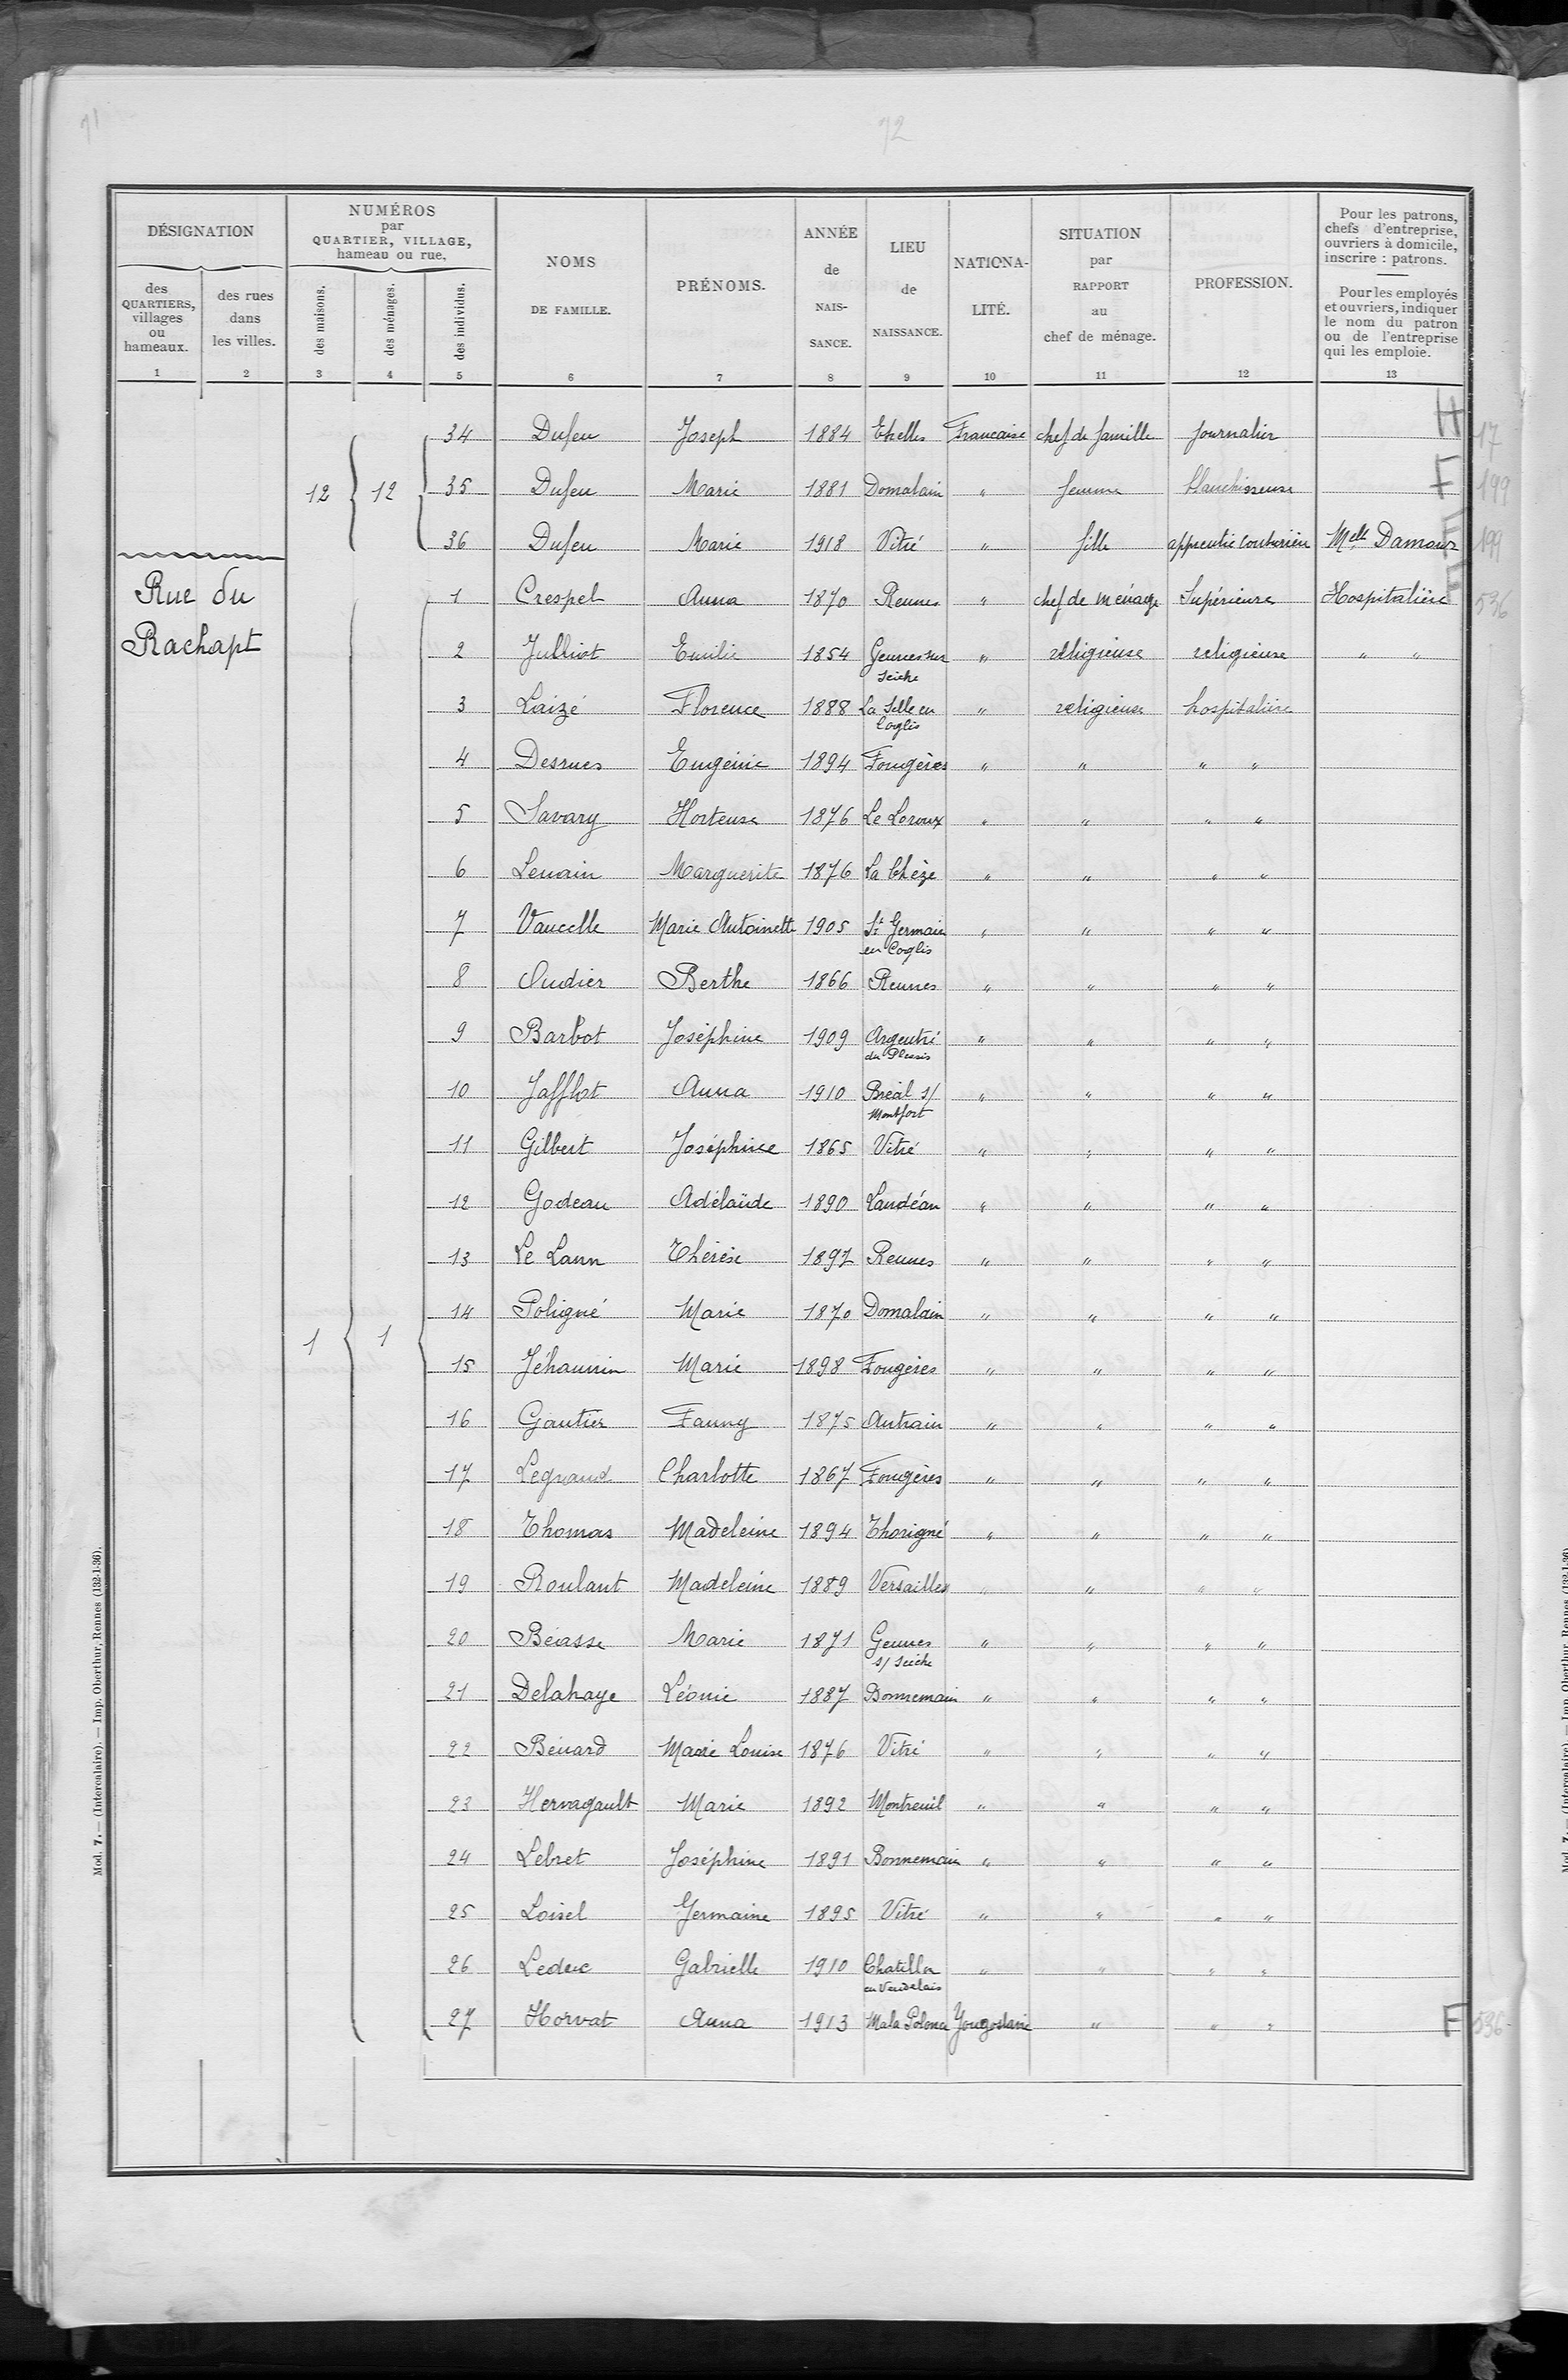 71
72
DÉSIGNATION
des QUARTIERS, villages ou hameaux.
des rues dans les villes.
NUMÉROS
par
QUARTIER, VILLAGE,
hameau ou rue.
des maisons.
des ménages.
des individus.
NOMS
DE FAMILLE.
PRÉNOMS.
ANNÉE
de
NAIS-
SANCE.
LIEU
de
NAISSANCE.
NATIONA-
LITÉ.
SITUATION
par
RAPPORT
au
chef de ménage.
PROFESSION.
Pour les patrons,
chefs d'entreprise,
ouvriers à domicile,
inscrire : patrons.
Pour les employés
et ouvriers, indiquer
le nom du patron
ou de l'entreprise
qui les emploie.
1 2 3 4 5 6 7 8 9 10 11 12 13
34 Dufeu Joseph 1884 Etrelles Francaise chef de famille Journalier H 17
12 12 35 Dufeu Marie 1881 Domalain " femme blanchisseuse F 199
36 Dufeu Marie 1918 Vitré " fille apprentie couturière Melle Damour F 199
Rue du
Rachapt
1 Crespel Anna 1870 Rennes " chef de ménage Supérieure Hospitalière F 536
2 Julliot Emilie 1854 Gennes sur " religieuse religieuse " "
Seiche
3 Laizé Florence 1888 La Selle en " religieuse hospitalière
Coglis
4 Desrues Eugénie 1894 Fougères " " " "
5 Savary Hortense 1876 Le Loroux " " " "
6 Lenain Marguerite 1876 La Chèze " " " "
7 Vaucelle Marie Antoinette 1905 St Germain " " " "
en Coglis
8 Oudier Berthe 1866 Rennes " " " "
9 Barbot Joséphine 1909 Argentré " " " "
du Plessis
10 Jafflot Anna 1910 Bréal s/ " " " "
Montfort
11 Gilbert Joséphine 1865 Vitré " " " "
12 Godeau Adélaïde 1890 Landéan " " " "
13 Le Lann Thérèse 1897 Rennes " " " "
14 Poligné Marie 1870 Domalain " " " "
1 1
15 Jéhannin Marie 1898 Fougères " " " "
16 Gautier Fanny 1875 Antrain " " " "
17 Legrand Charlotte 1867 Fougères " " " "
18 Thomas Madeleine 1894 Thorigné " " " "
19 Roulant Madeleine 1889 Versailles " " " "
20 Béasse Marie 1871 Gennes " " " "
s/ Seiche
21 Delahaye Léonie 1887 Bonnemain " " " "
22 Bénard Marie Louise 1876 Vitré " " " "
23 Hervagault Marie 1892 Montreuil " " " "
24 Lebret Joséphine 1891 Bonnemain " " " "
25 Loisel Germaine 1895 Vitré " " " "
26 Leduc Gabrielle 1910 Chatillon " " " "
en Vendelais
27 Horvat Anna 1913 Mala Polona Yougoslavie " " " F 536
Mod. 7. — (Intercalaire). — Imp. Oberthur, Rennes (132-1-36).